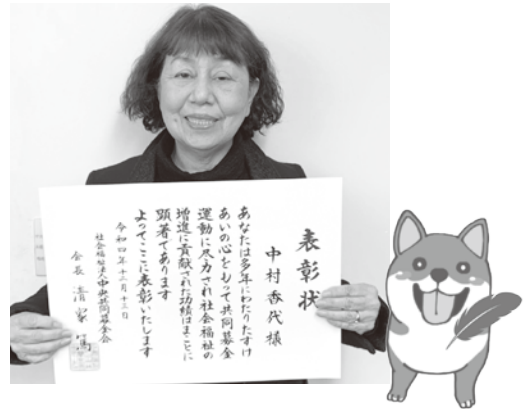 表彰状
中村香代様
あなたは多年にわたりたすけ
あいの心をもって共同募金
運動に尽力され社会福祉の
増進に貢献された功績はまことに
顕著であります
よってここに表彰いたします
令和四年十二月十三日
社会福祉法人中央共同募金会
会長